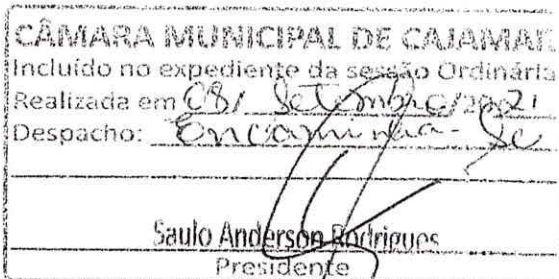 CÂMARA MUNICIPAL DE CAJAMAR
Incluído no expediente da sessão Ordinária
Realizada em 08/ Setembro/2021
Despacho: Encaminha-se
Saulo Anderson Rodrigues
Presidente